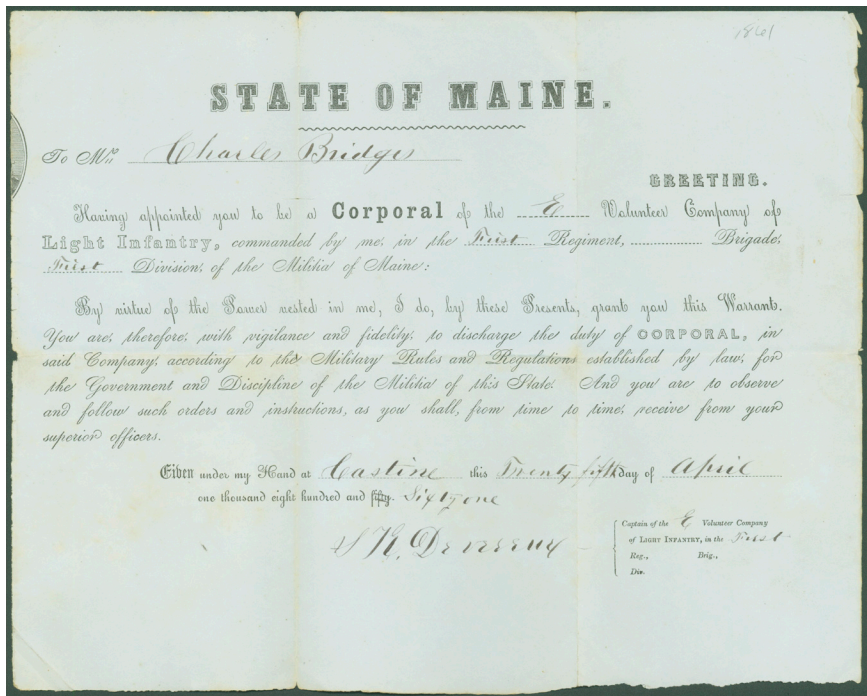 1861
STATE OF MAINE.
To Mr. Charles Bridges
GREETING.
Having appointed you to be a Corporal of the E Volunteer Company of
Light Infantry, commanded by me, in the First Regiment, Brigade,
First Division, of the Militia of Maine:
By virtue of the Power vested in me, I do, by these Presents, grant you this Warrant.
You are, therefore, with vigilance and fidelity, to discharge the duty of CORPORAL, in
said Company, according to the Military Rules and Regulations established by law, for
the Government and Discipline of the Militia of this State. And you are to observe
and follow such orders and instructions, as you shall, from time to time, receive from your
superior officers.
Given under my Hand at Castine this Twenty fifth day of April
one thousand eight hundred and fifty. Sixty one
S K. Devereux
Captain of the E Volunteer Company
of LIGHT INFANTRY, in the First
Reg., Brig.,
Div.